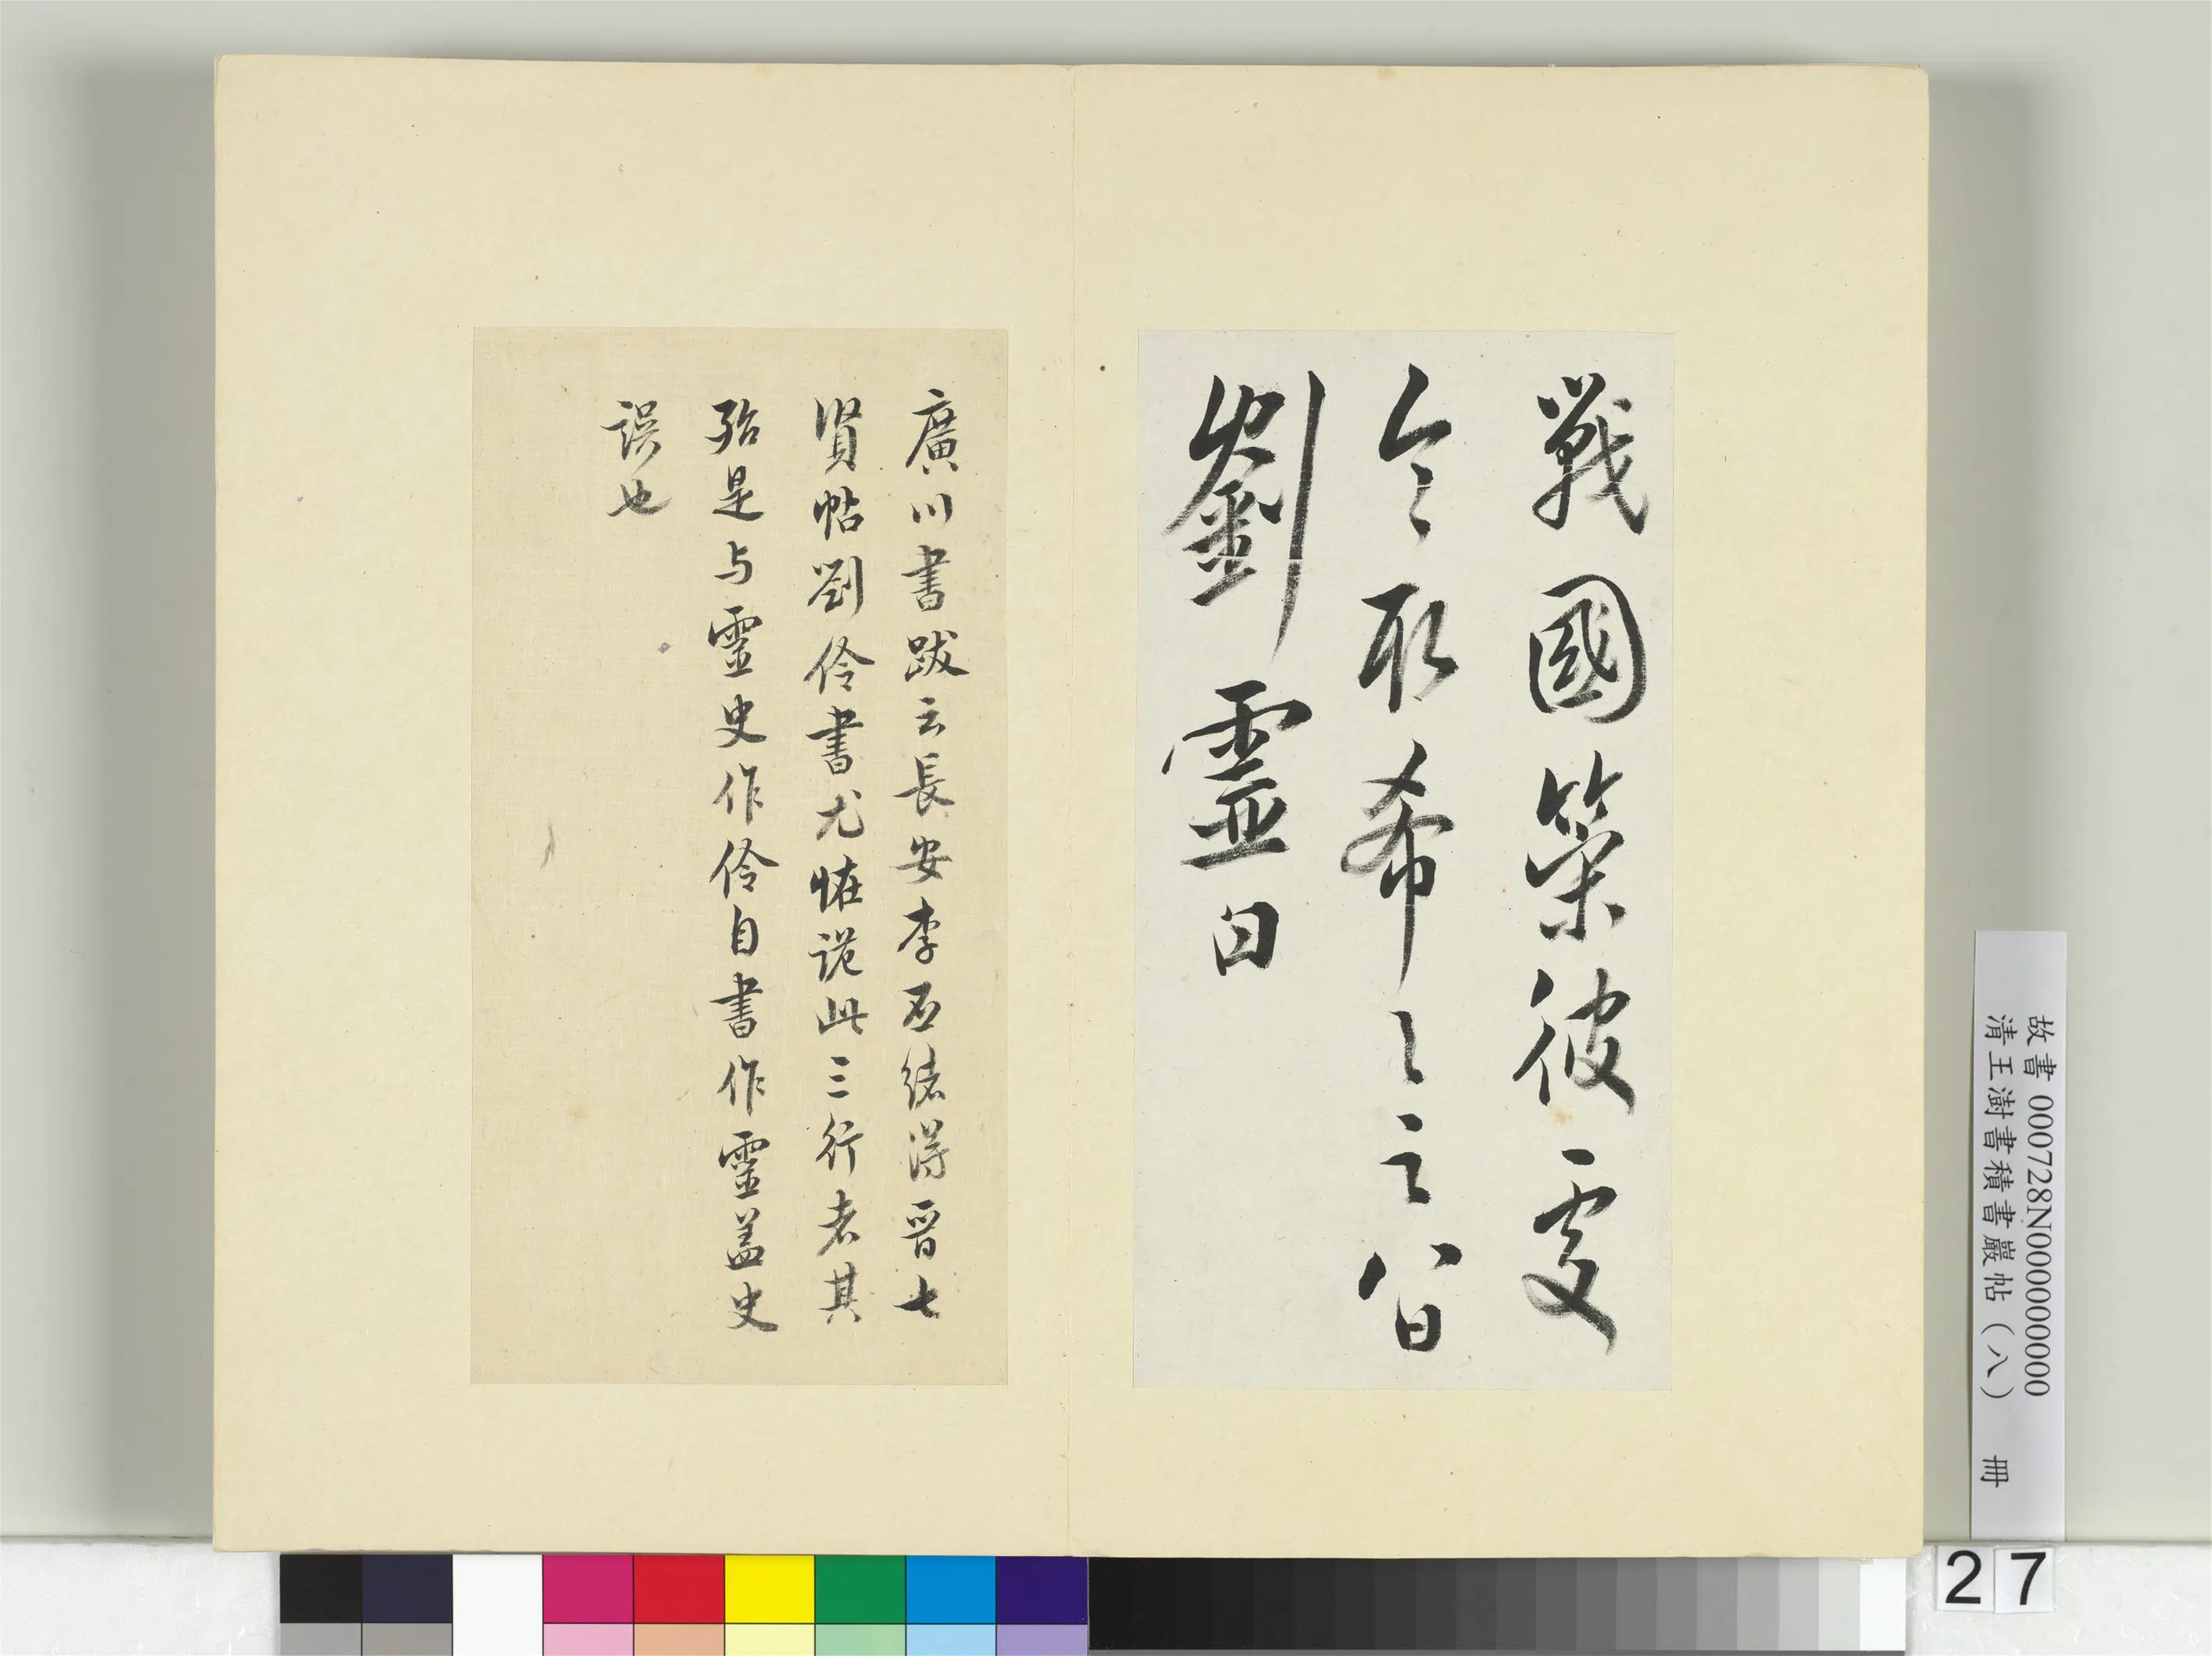 戰國策彼處
今取希之之皆
劉靈白
廣川書跋云長安李丕緒得晉七
賢帖劉伶書尤怪詭此三行者其
殆是与靈史作伶自書作靈蓋史
誤也
故書 000728N000000000
清王澍書積書巖帖（八） 冊
27